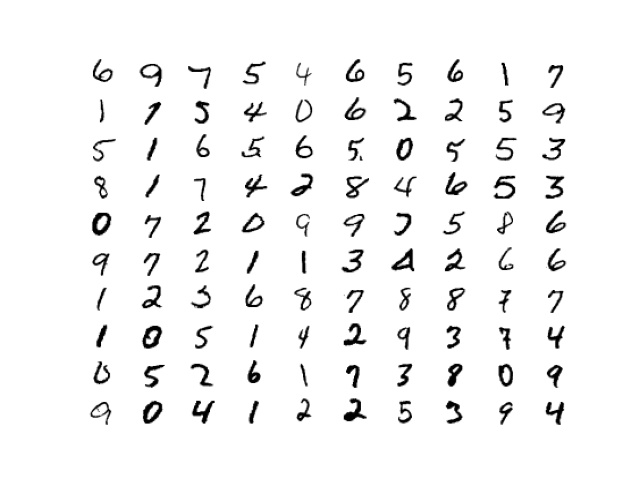 6 9 7 5 4 6 5 6 1 7
1 1 5 4 0 6 2 2 5 9
5 1 6 5 6 5 0 5 5 3
8 1 7 4 2 8 4 6 5 3
0 7 2 0 9 9 7 5 8 6
9 7 2 1 1 3 4 2 6 6
1 2 3 6 8 7 8 8 7 7
1 0 5 1 4 2 9 3 7 4
0 5 2 6 1 7 3 8 0 9
9 0 4 1 2 2 5 3 9 4